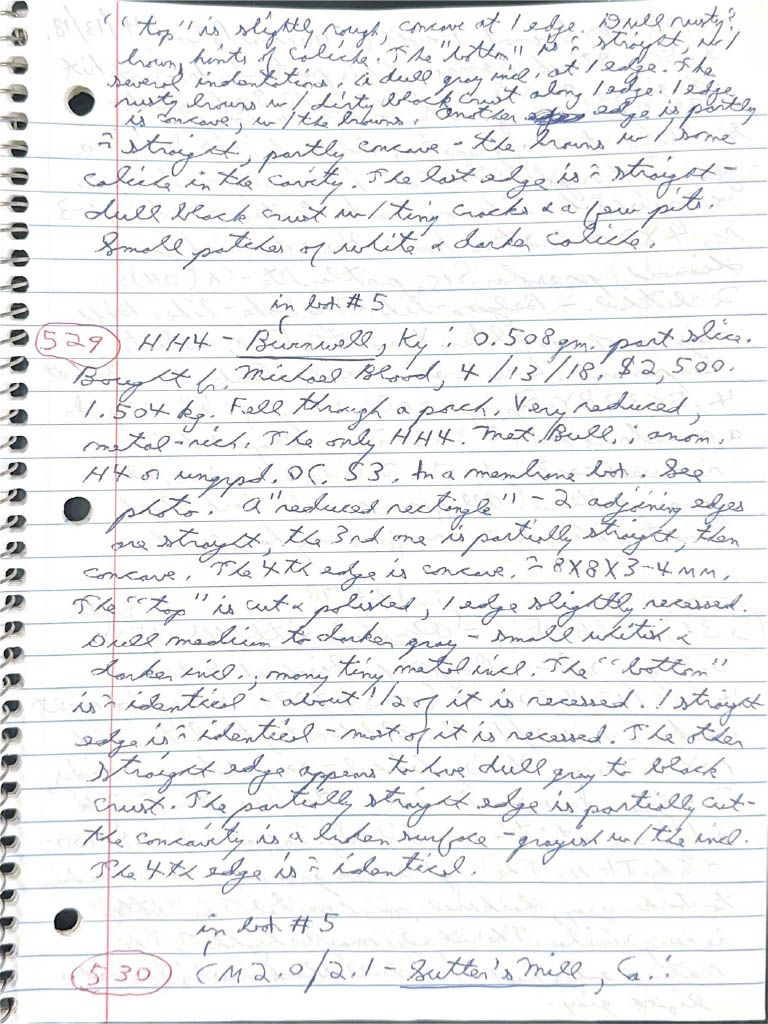 "top" is slightly rough, concave at 1 edge. Dull rusty?
brown, hints of caliche. The "bottom" is ≈ straight, w/
several indentations. A dull gray incl. at 1 edge. The
rusty browns w/ dirty black crust along 1 edge. 1 edge
is concave, w/ the browns. Another edge is partly
≈ straight, partly concave - the browns w/ some
caliche in the cavity. The last edge is ≈ straight -
dull black crust w/ tiny cracks & a few pits.
Small patches of white & darker caliche.
in box #5
529 HH4 - Burnwell, Ky: 0.508gm. part slice.
Bought fr. Michael Blood, 4/13/18. $2,500.
1.504 kg. Fell through a porch. Very reduced,
metal-rich. The only HH4. Met. Bull.: anom.
H4 or ungrpd. OC. S3. In a membrane box. See
photo. A "reduced rectingle" - 2 adjoining edges
are straight, the 3rd one is partially straight, then
concave. The 4th edge is concave. ≈ 8X8X3-4mm.
The "top" is cut & polished, 1 edge slightly recessed.
Dull medium to darker gray - small whitish &
darker incl., many tiny metal incl. The "bottom"
is ≈ identical - about 1/2 of it is recessed. 1 straight
edge is ≈ identical - most of it is recessed. The other
straight edge appears to have dull gray to black
crust. The partially straight edge is partially cut-
the concavity is a broken surface - grayish w/ the incl.
The 4th edge is ≈ identical.
in box #5
530 CM2.0/2.1 - Sutter's Mill, Ca.: